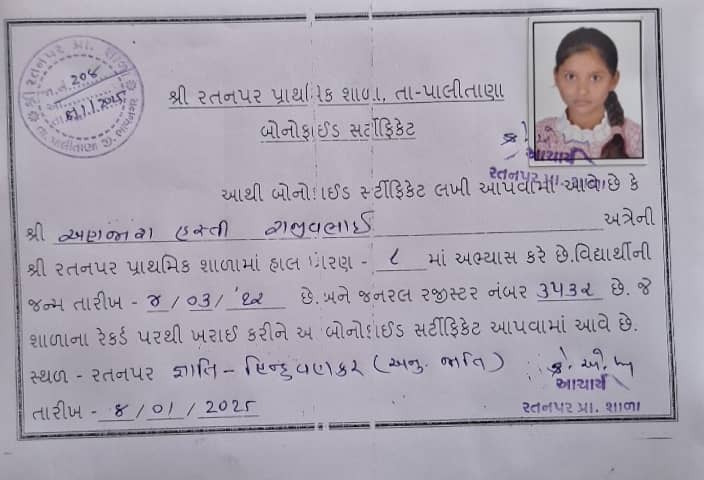 શ્રી રતનપર પ્રા. શાળા
તા. પાલીતાણા જી. ભાવનગર
208
શ્રી રતનપર પ્રાથમિક શાળા, તા-પાલીતાણા
બોનોફાઈડ સર્ટીફિકેટ
આચાર્ય
રતનપર પ્રા. શાળા
આથી બોનોફાઈડ સર્ટીફિકેટ લખી આપવામાં આવે છે કે
શ્રી હસ્તી અત્રેની
શ્રી રતનપર પ્રાથમિક શાળામાં હાલ ધોરણ - ૮ માં અભ્યાસ કરે છે.વિદ્યાર્થીની
જન્મ તારીખ - ૪/03/ છે. અને જનરલ રજીસ્ટર નંબર ૩૫૩૨ છે. જે
શાળાના રેકર્ડ પરથી ખરાઈ કરીને આ બોનોફાઈડ સર્ટીફિકેટ આપવામાં આવે છે.
સ્થળ - રતનપર જ્ઞાતિ - હિન્દુ વણકર (અનુ. જાતિ)
આચાર્ય
તારીખ - ૪/01/2025
રતનપર પ્રા. શાળા